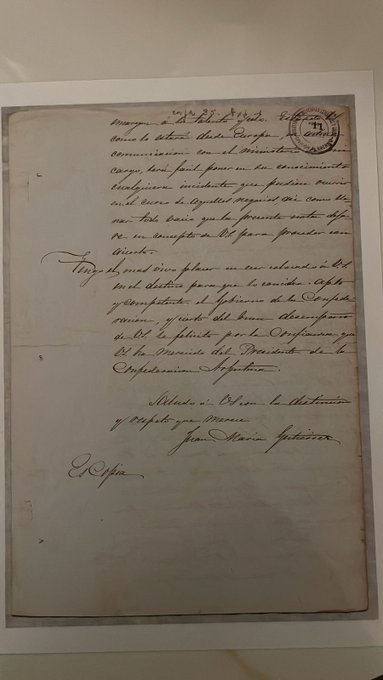 amague á la talento y celo. Estando V.S.
como lo estará desde Europa, en activa
comunicacion con el ministerio á mi
cargo, será facil poner en su conocimiento
cualquiera incidente que pudiese ocurrir
en el curso de aquellos negocios asi como lle-
nar todo vacio que la presente nota dejase
en concepto de VS para proceder con
acierto.
Tengo el mas vivo placer en ver colocado á VS
en el destino para que lo considera apto
y competente el Gobierno de la Confede-
racion, y cierto del buen desempeño
de VS. le felicito por la confianza que
VS ha merecido del Presidente de la
Confederacion Argentina.
Saludo á VS con la distincion
y respeto que merece
Juan María Gutierrez
Es Copia